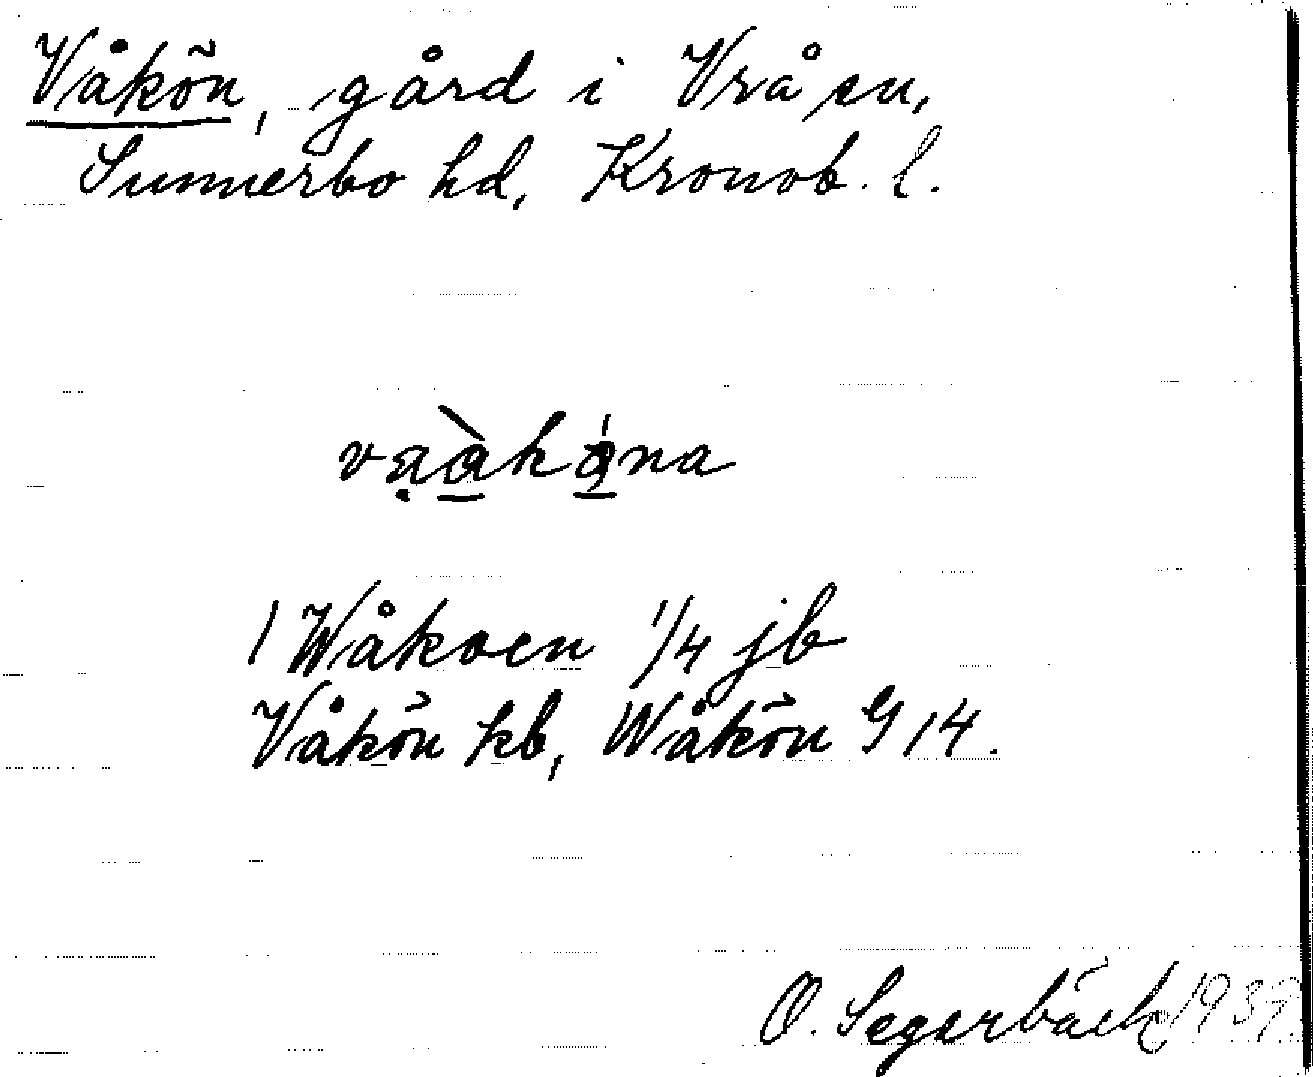 Våkön, gård i Vrå sn,
Sunnerbo hd, Kronob. l.
1 Wåkoen 1/4 jb
Våkön kb, Wåkön G 14.
O. Segerbäck 1937.